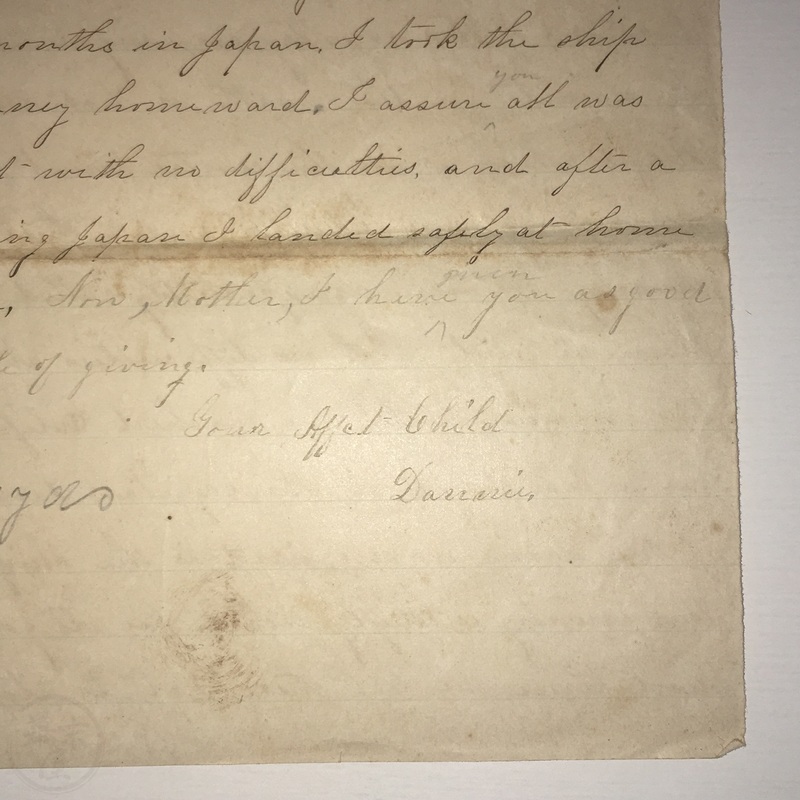 months in Japan. I took the ship
ney homeward. I assure you all was
t with no difficulties, and after a
ing Japan I landed safely at home
Now, Mother, I have given you as good
of giving.
Your Affct Child
Dannie.